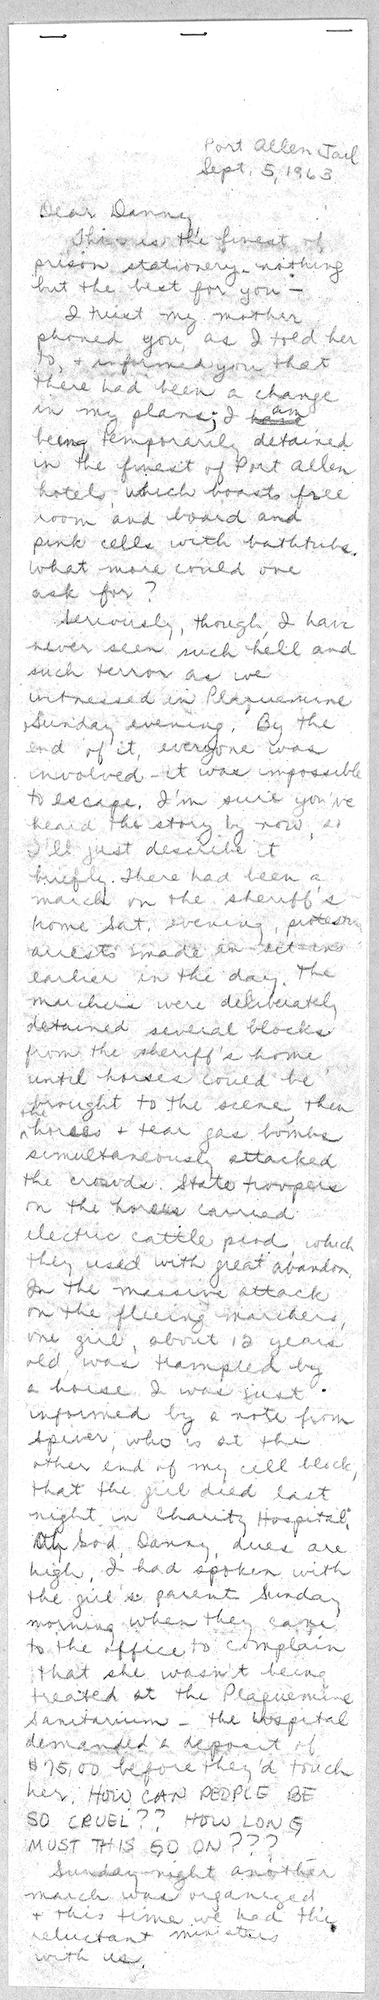 Port Allen Jail
Sept. 5, 1963
Dear Danny,
This is the finest of
prison stationery - nothing
but the best for you -
I trust my mother
phoned you, as I told her
to, + informed you that
there had been a change
in my plans; I am
being temporarily detained
in the finest of Port Allen
hotels, which boasts free
room and board and
pink cells with bathtubs.
What more could one
ask for?
Seriously, though, I have
never seen such hell and
such terror as we
witnessed in Plaquemine
Sunday evening. By the
end of it, everyone was
involved - it was impossible
to escape. I'm sure you've
heard the story by now, so
I'll just describe it
briefly. There had been a
march on the sheriff's
home Sat. evening, protesting
arrests made
earlier in the day. The
marchers were deliberately
detained several blocks
from the sheriff's home
until horses could be
brought to the scene, then
the horses + tear gas bombs
simultaneously attacked
the crowds. State troopers
on the horses carried
electric cattle prod, which
they used with great abandon.
In the massive attack
on the fleeing marchers,
one girl, about 12 years
old, was trampled by
a horse. I was just
informed by a note from
Spiver, who is at the
other end of my cell block,
that the girl died last
night in Charity Hospital.
Oh God, Danny, dues are
high, I had spoken with
the girl's parent Sunday
morning when they came
to the office to complain
that she wasn't being
treated at the Plaquemine
Sanitarium - the hospital
demanded a deposit of
$75.00 before they'd touch
her. HOW CAN PEOPLE BE
SO CRUEL?? HOW LONG
MUST THIS GO ON???
Sunday night another
march was organized
+ this time we had the
reluctant ministers
with us.